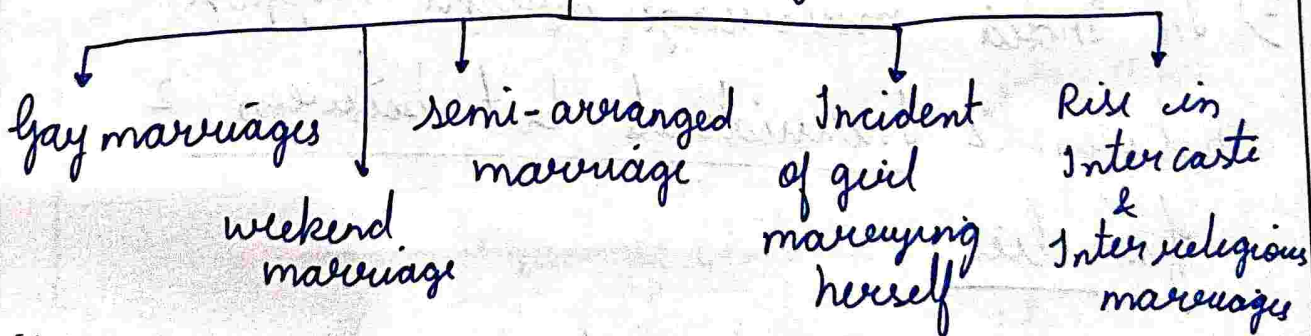 Gay marriages
weekend
marriage
semi-arranged
marriage
Incident
of girl
marrying
herself
Rise in
Intercaste
&
Inter religious
marriages